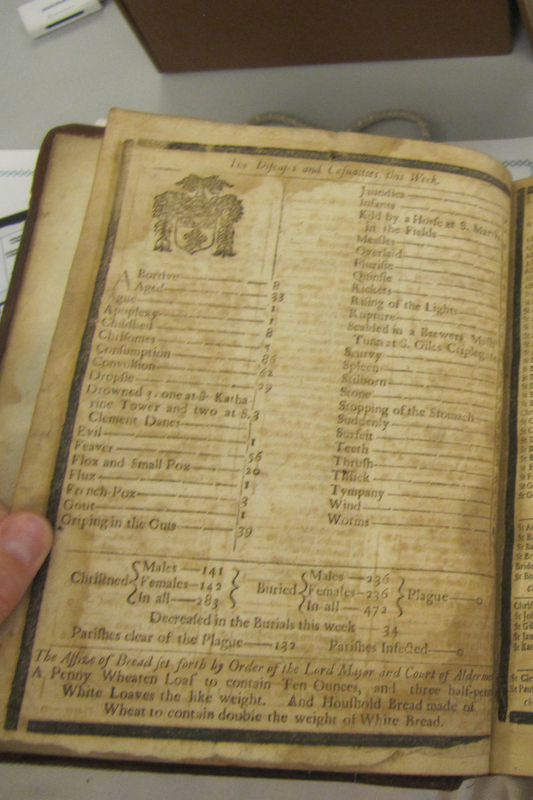 The Diseases and Casualties this Week.
Abortive — 8
Aged — 33
Ague — 1
Apoplexy — 1
Childbed — 8
Chrisomes — 5
Consumption — 86
Convulsion — 62
Dropsie — 29
Drowned 3. one at S. Katha-
rine Tower and two at S. 3
Clement Danes
Evil — 1
Feaver — 56
Flox and Small Pox — 20
Flux — 1
French-Pox — 3
Gout — 1
Griping in the Guts — 39
Jaundies
Infants
Kild by a Horse at S.
in the Fields
Measles
Overlaid
Plurisie
Quinsie
Rickets
Rising of the Lights
Rupture
Scalded in a Brewers
Tunn at S. Giles
Scurvy
Spleen
Stilborn
Stone
Stopping of the Stomach
Suddenly
Surfeit
Teeth
Thrush
Tissick
Tympany
Wind
Worms
Christned { Males — 141
Females — 142
In all — 283 }
Buried { Males — 236
Females — 236
In all — 472 } Plague — 0
Decreased in the Burials this week — 34
Parishes clear of the Plague — 132 Parishes Infected — 0
The Assize of Bread set forth by Order of the Lord Major and Court of
A Penny Wheaten Loaf to contain Ten Ounces, and three half-
White Loaves the like weight. And Houshold Bread made of
Wheat to contain double the weight of White Bread.